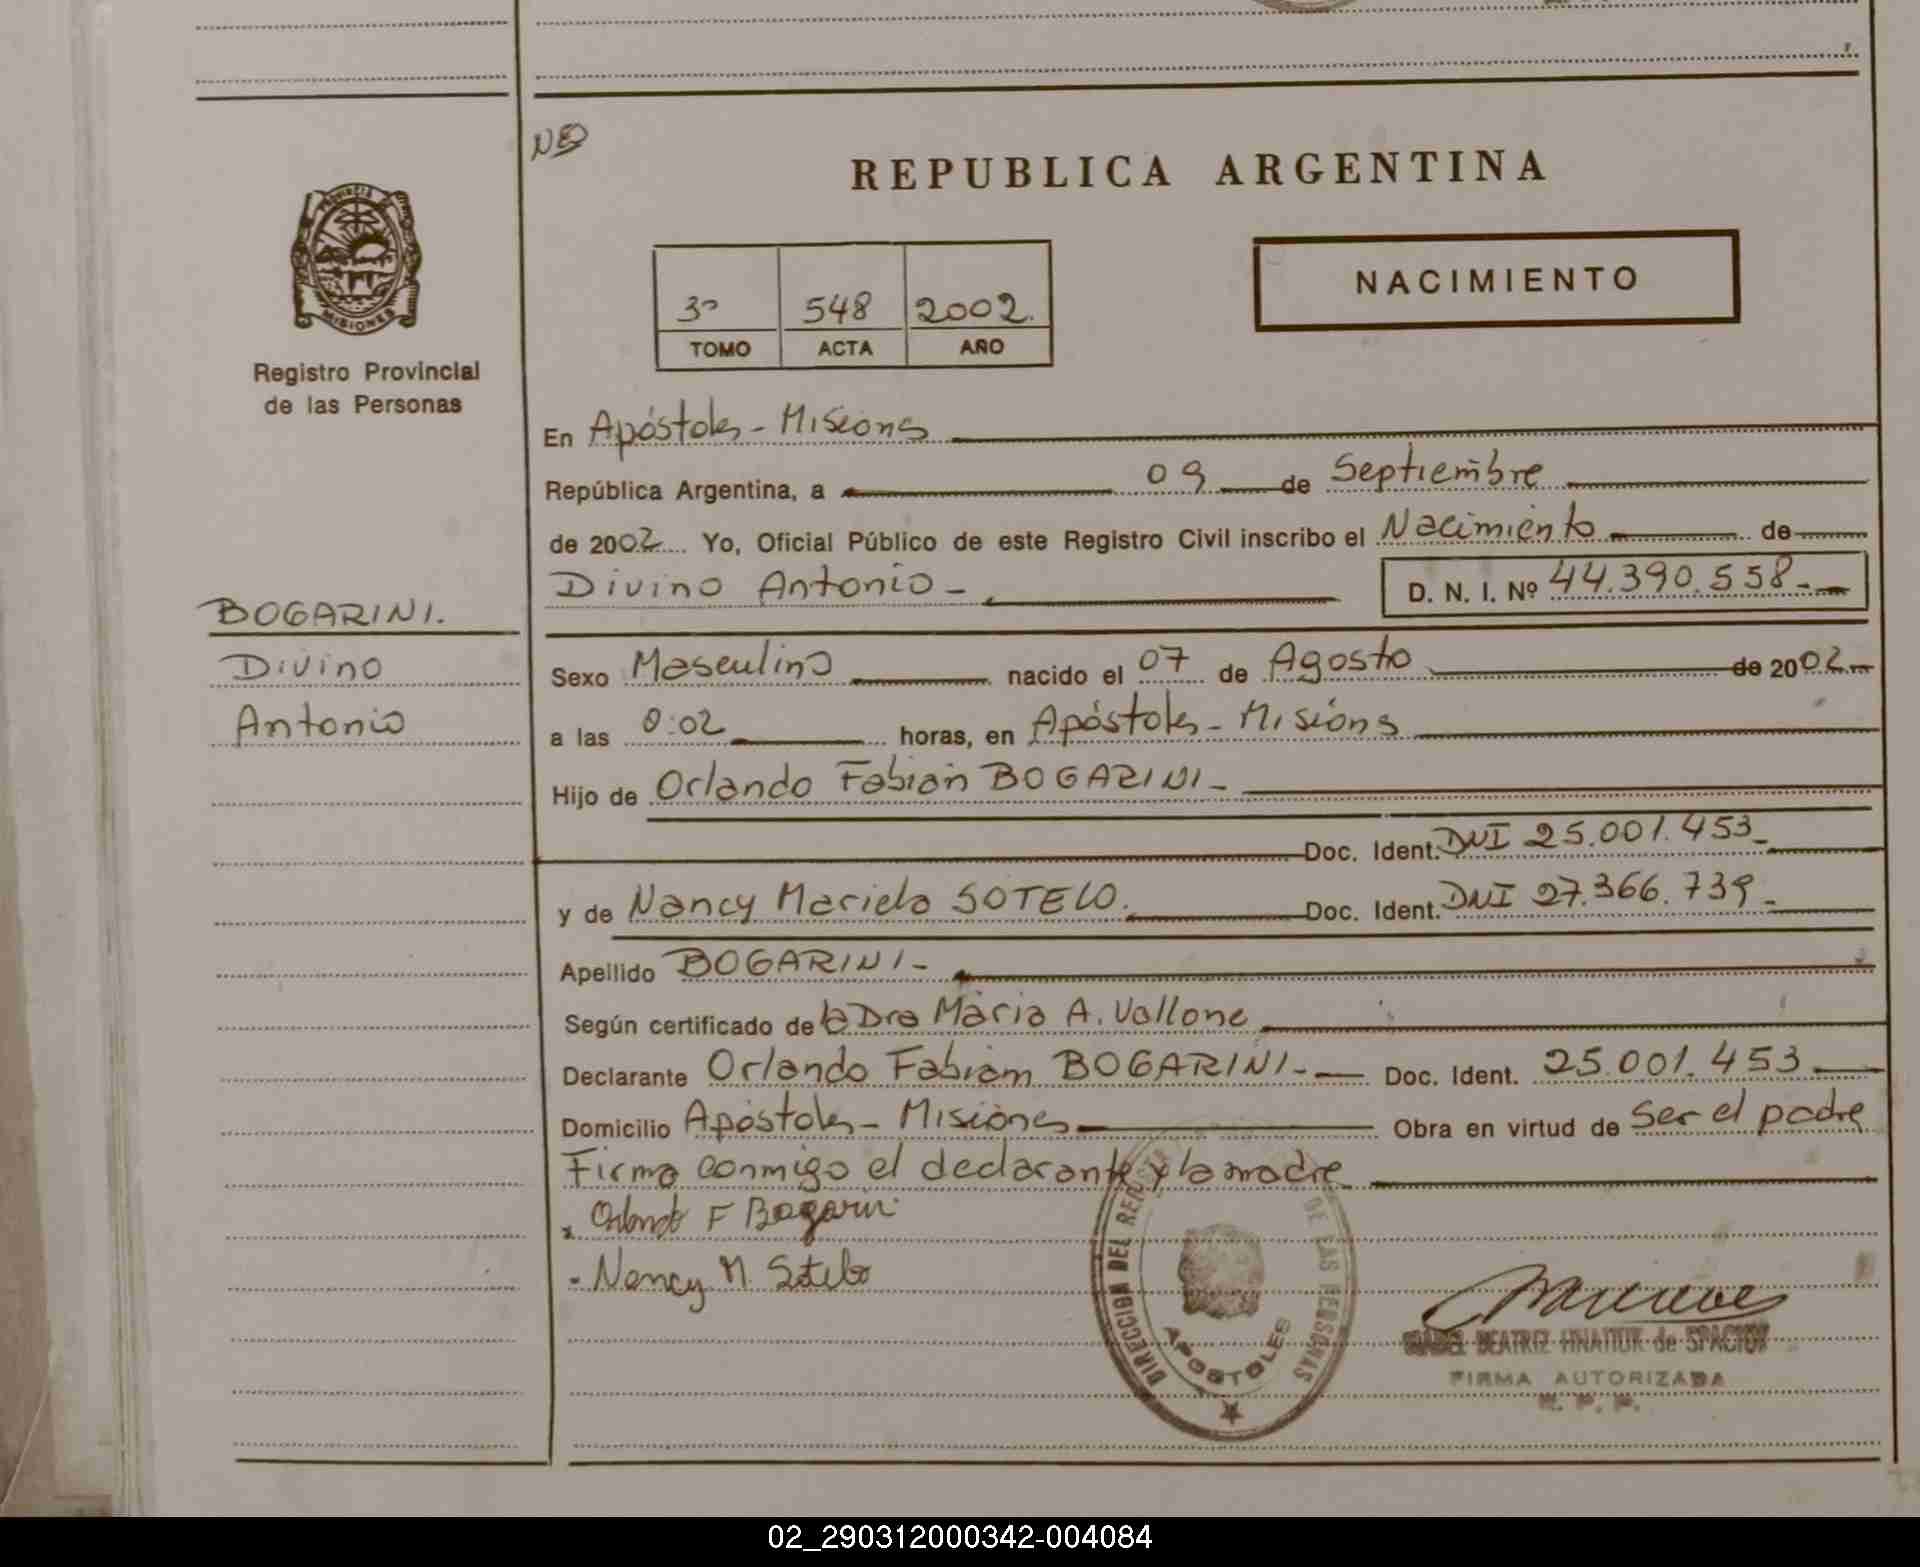 NB
REPUBLICA ARGENTINA
PROVINCIA DE
MISIONES
Registro Provincial
de las Personas
3º 548 2002.
TOMO ACTA AÑO
NACIMIENTO
En Apóstoles - Misiones
República Argentina, a 09 de Septiembre
de 2002 Yo, Oficial Público de este Registro Civil inscribo el Nacimiento de
Divino Antonio - D. N. I. Nº 44.390.558-
BOGARINI.
Divino
Antonio
Sexo Masculino nacido el 07 de Agosto de 2002
a las 0:02 horas, en Apóstoles - Misiones
Hijo de Orlando Fabián BOGARINI -
Doc. Ident. DNI 25.001.453-
y de Nancy Mariela SOTELO. Doc. Ident. DNI 27.366.739-
Apellido BOGARINI -
Según certificado de la Dra María A. Vallone
Declarante Orlando Fabián BOGARINI - Doc. Ident. 25.001.453
Domicilio Apóstoles - Misiones Obra en virtud de Ser el padre
Firma conmigo el declarante y la madre
Orlando F Bogarini
- Nancy M. Sotelo
DIRECCION DEL REGISTRO DE LAS PERSONAS
APOSTOLES
BEATRIZ HNATIUK de SPACIUK
FIRMA AUTORIZADA
R. P. P.
02_290312000342-004084